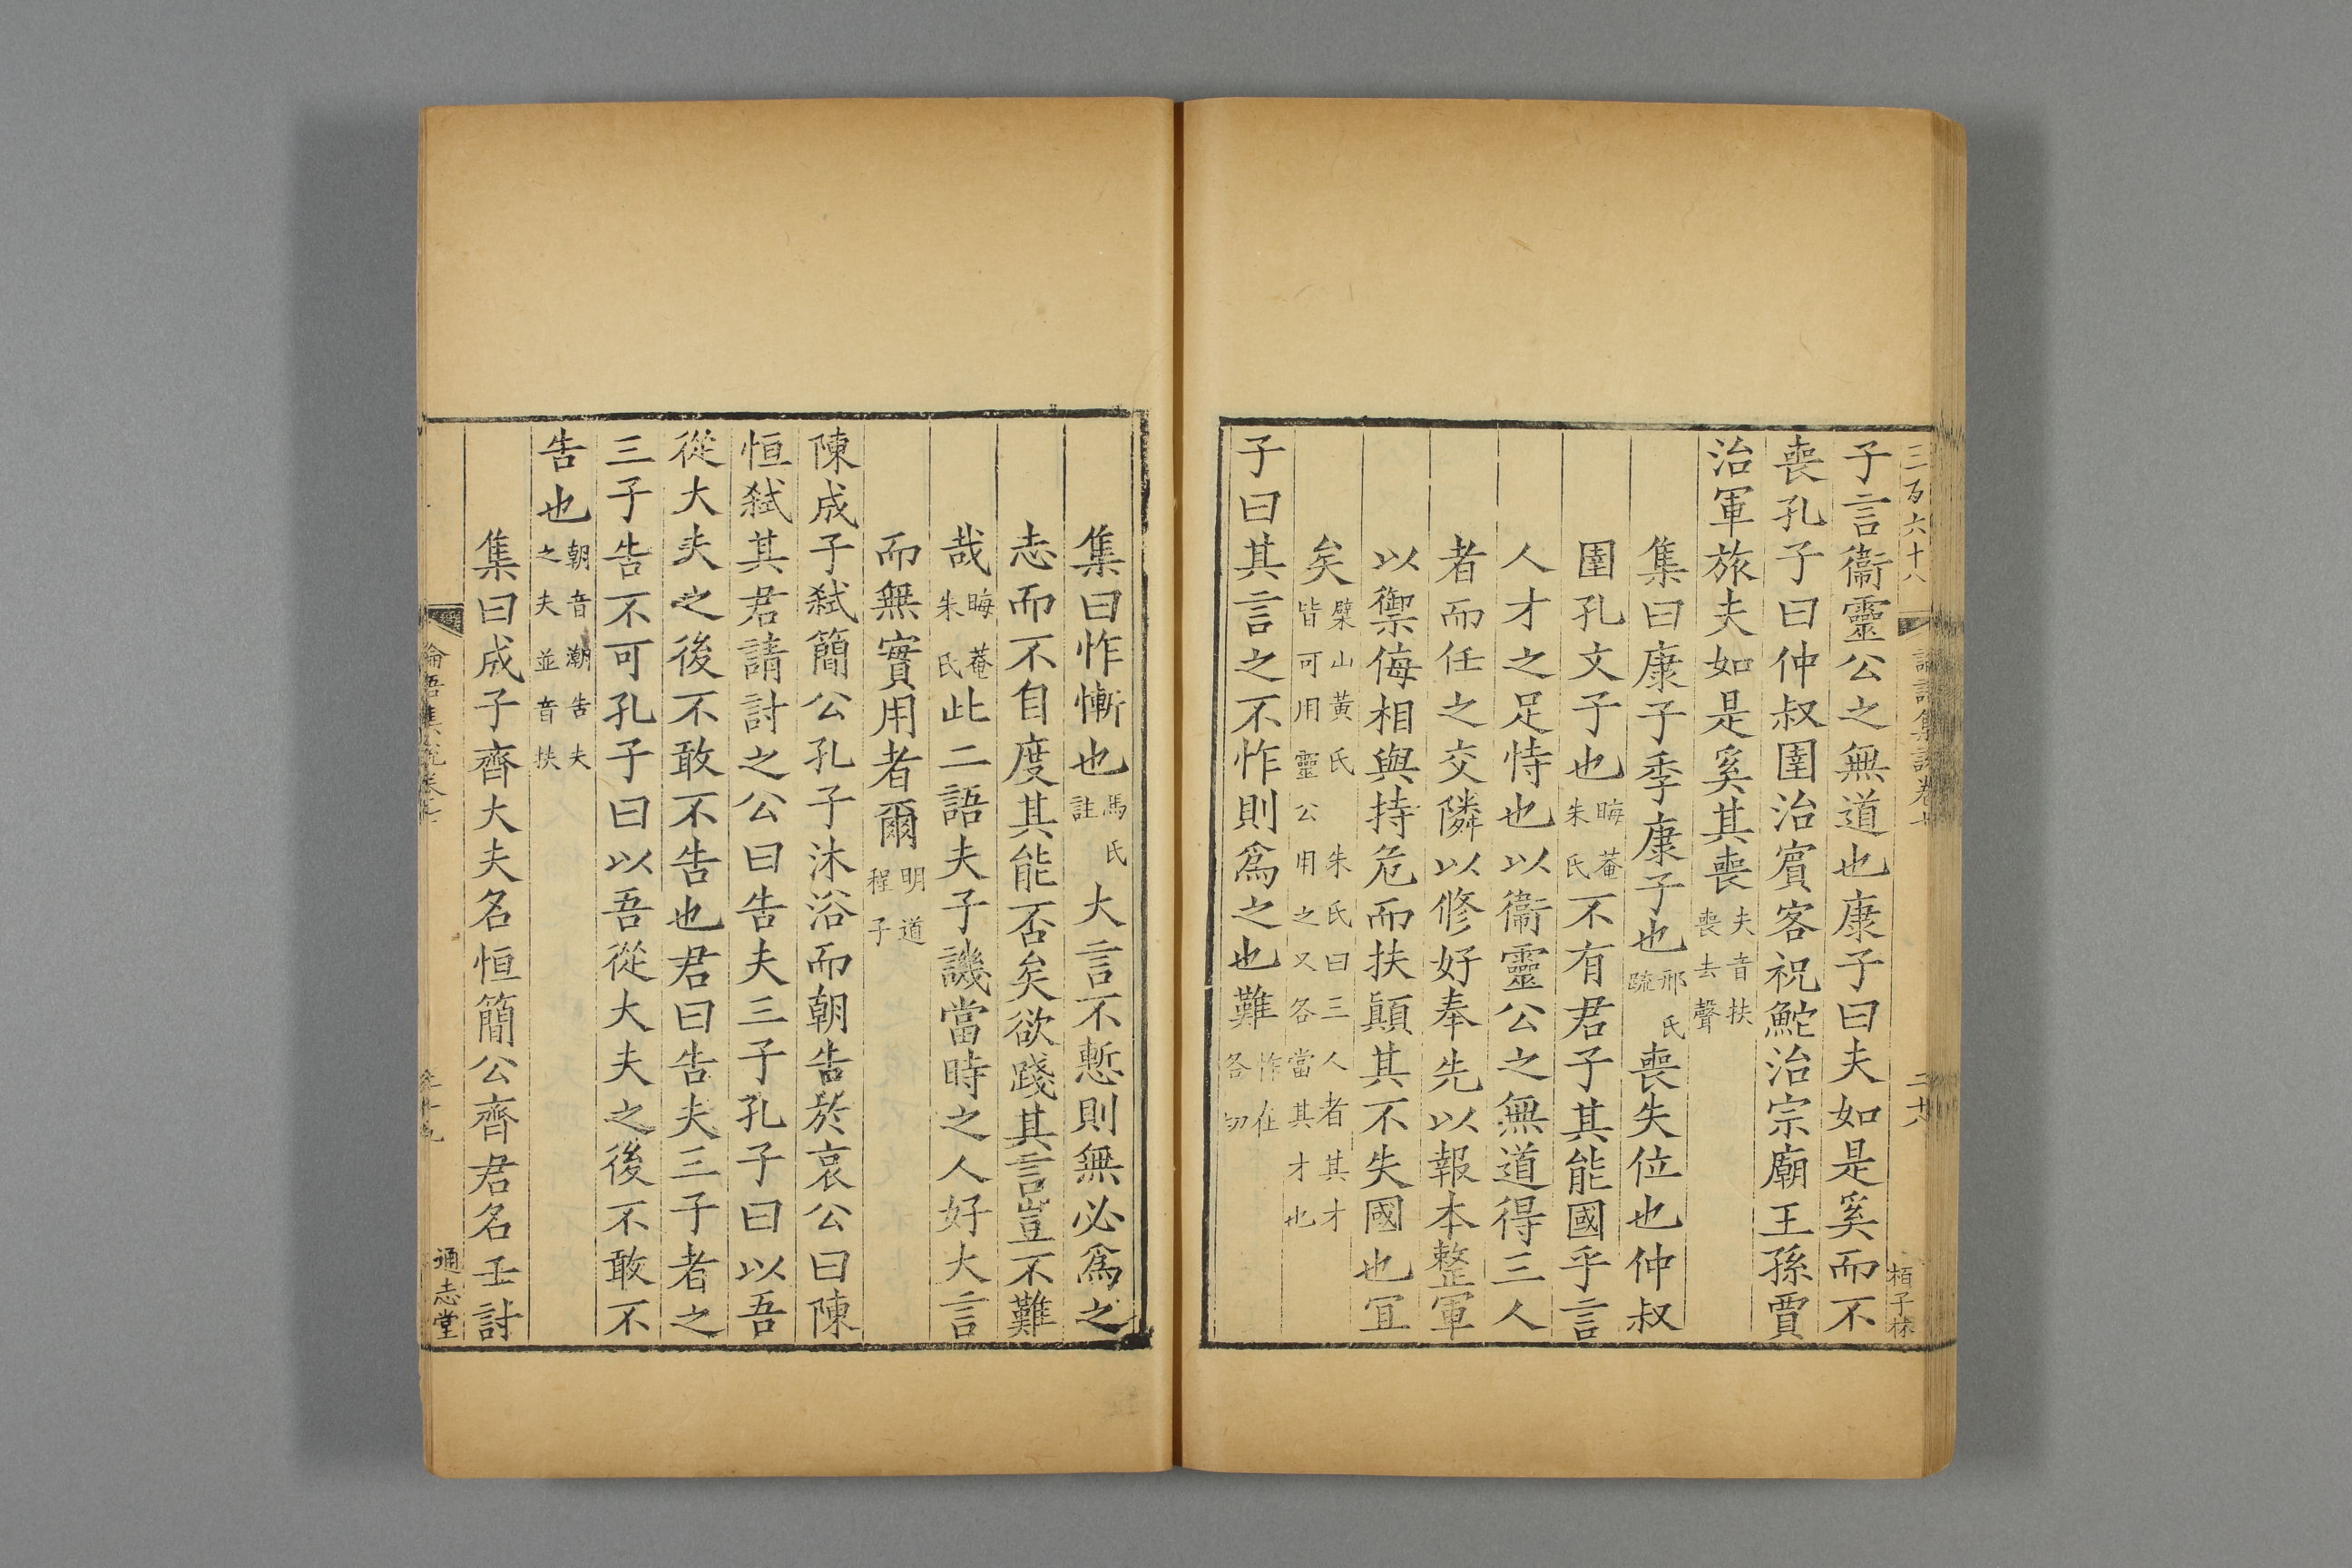 三百六十八
二十八
栢子林
子言衞靈公之無道也康子曰夫如是奚而不
喪孔子曰仲叔圉治賓客祝鮀治宗廟王孫賈
治軍旅夫如是奚其喪夫音扶喪去聲
集曰康子季康子也邢氏疏喪失位也仲叔
圉孔文子也晦菴朱氏不有君子其能國乎言
人才之足恃也以衞靈公之無道得三人
者而任之交隣以修好奉先以報本整軍
以禦侮相與持危而扶顚其不失國也宜
矣檗山黃氏朱氏曰三人者其才皆可用靈公用之又各當其才也
子曰其言之不怍則爲之也難怍仕各切
集曰怍慚也馬氏註大言不慙則無必爲之
志而不自度其能否矣欲踐其言豈不難
哉晦菴朱氏此二語夫子譏當時之人好大言
而無實用者爾明道程子
陳成子弑簡公孔子沐浴而朝告於哀公曰陳
恒弑其君請討之公曰告夫三子孔子曰以吾
從大夫之後不敢不告也君曰告夫三子者之
三子告不可孔子曰以吾從大夫之後不敢不
告也朝音潮告夫之夫並音扶
集曰成子齊大夫名恒簡公齊君名壬討
論語集說卷七
通志堂